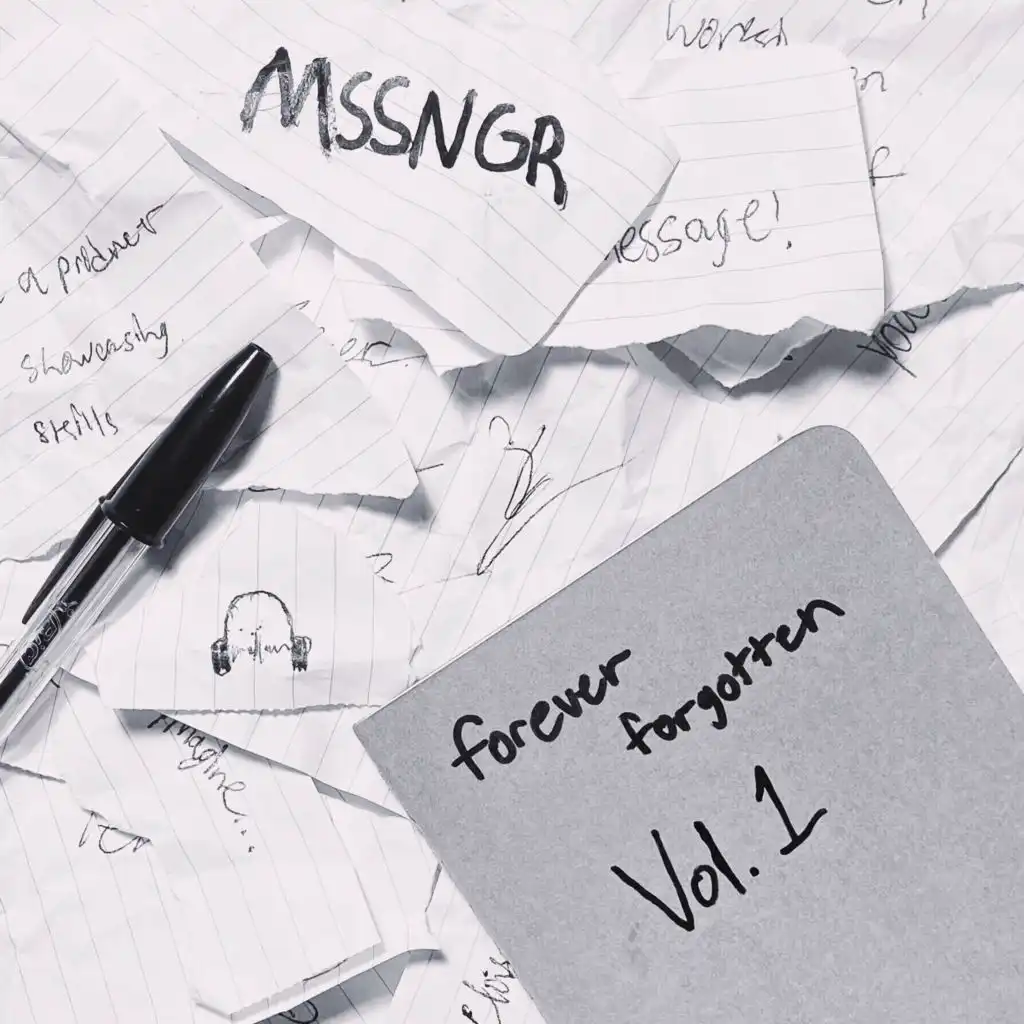 MSSNGR
essage!
a producer
showcasing
skills
you
forever
forgotten
Vol. 1
imagine...